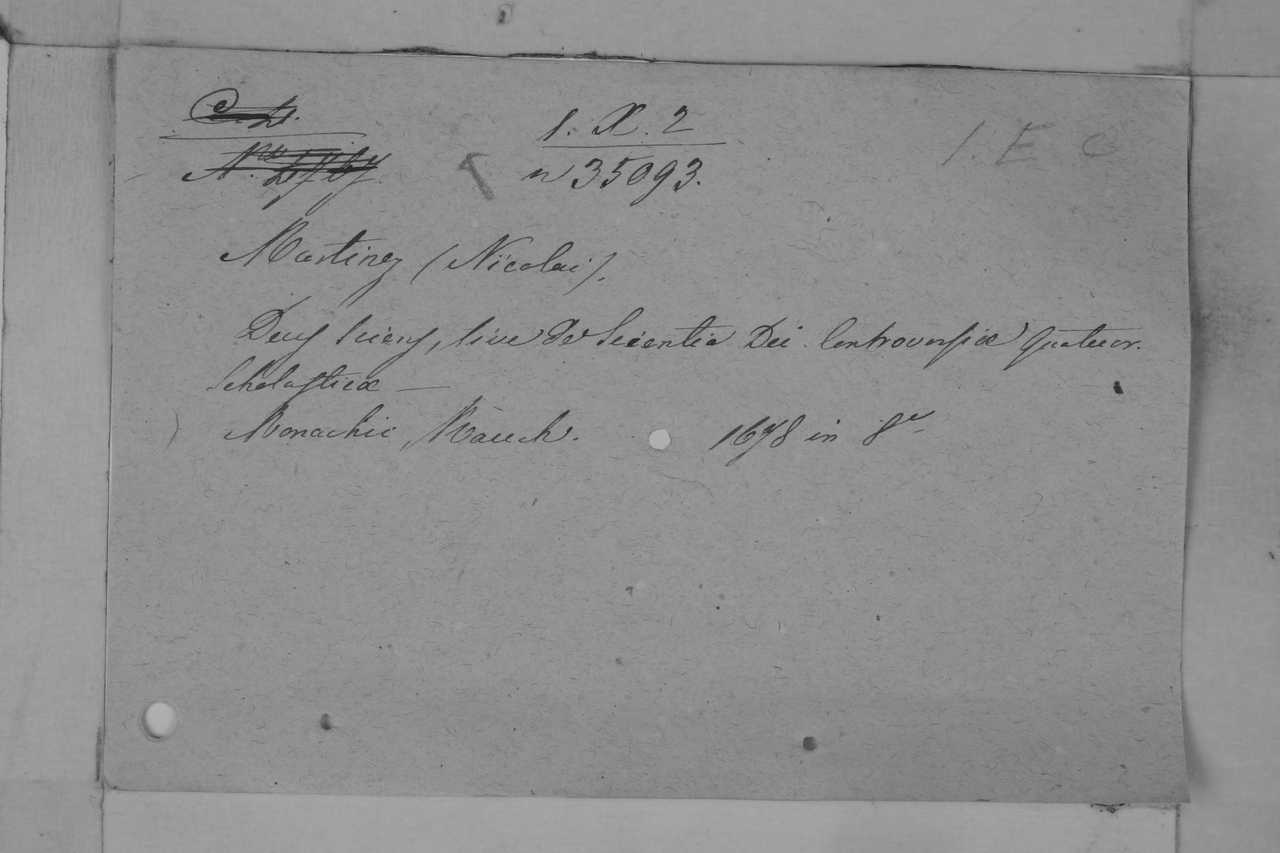 1. X. 2
n 35093.
1. E C
Martinez (Nicolai).
Deus sciens, sive de Scientia Dei. Controversiæ quatuor.
Scholasticæ —
Monachii, Rauch. 1678 in 8º